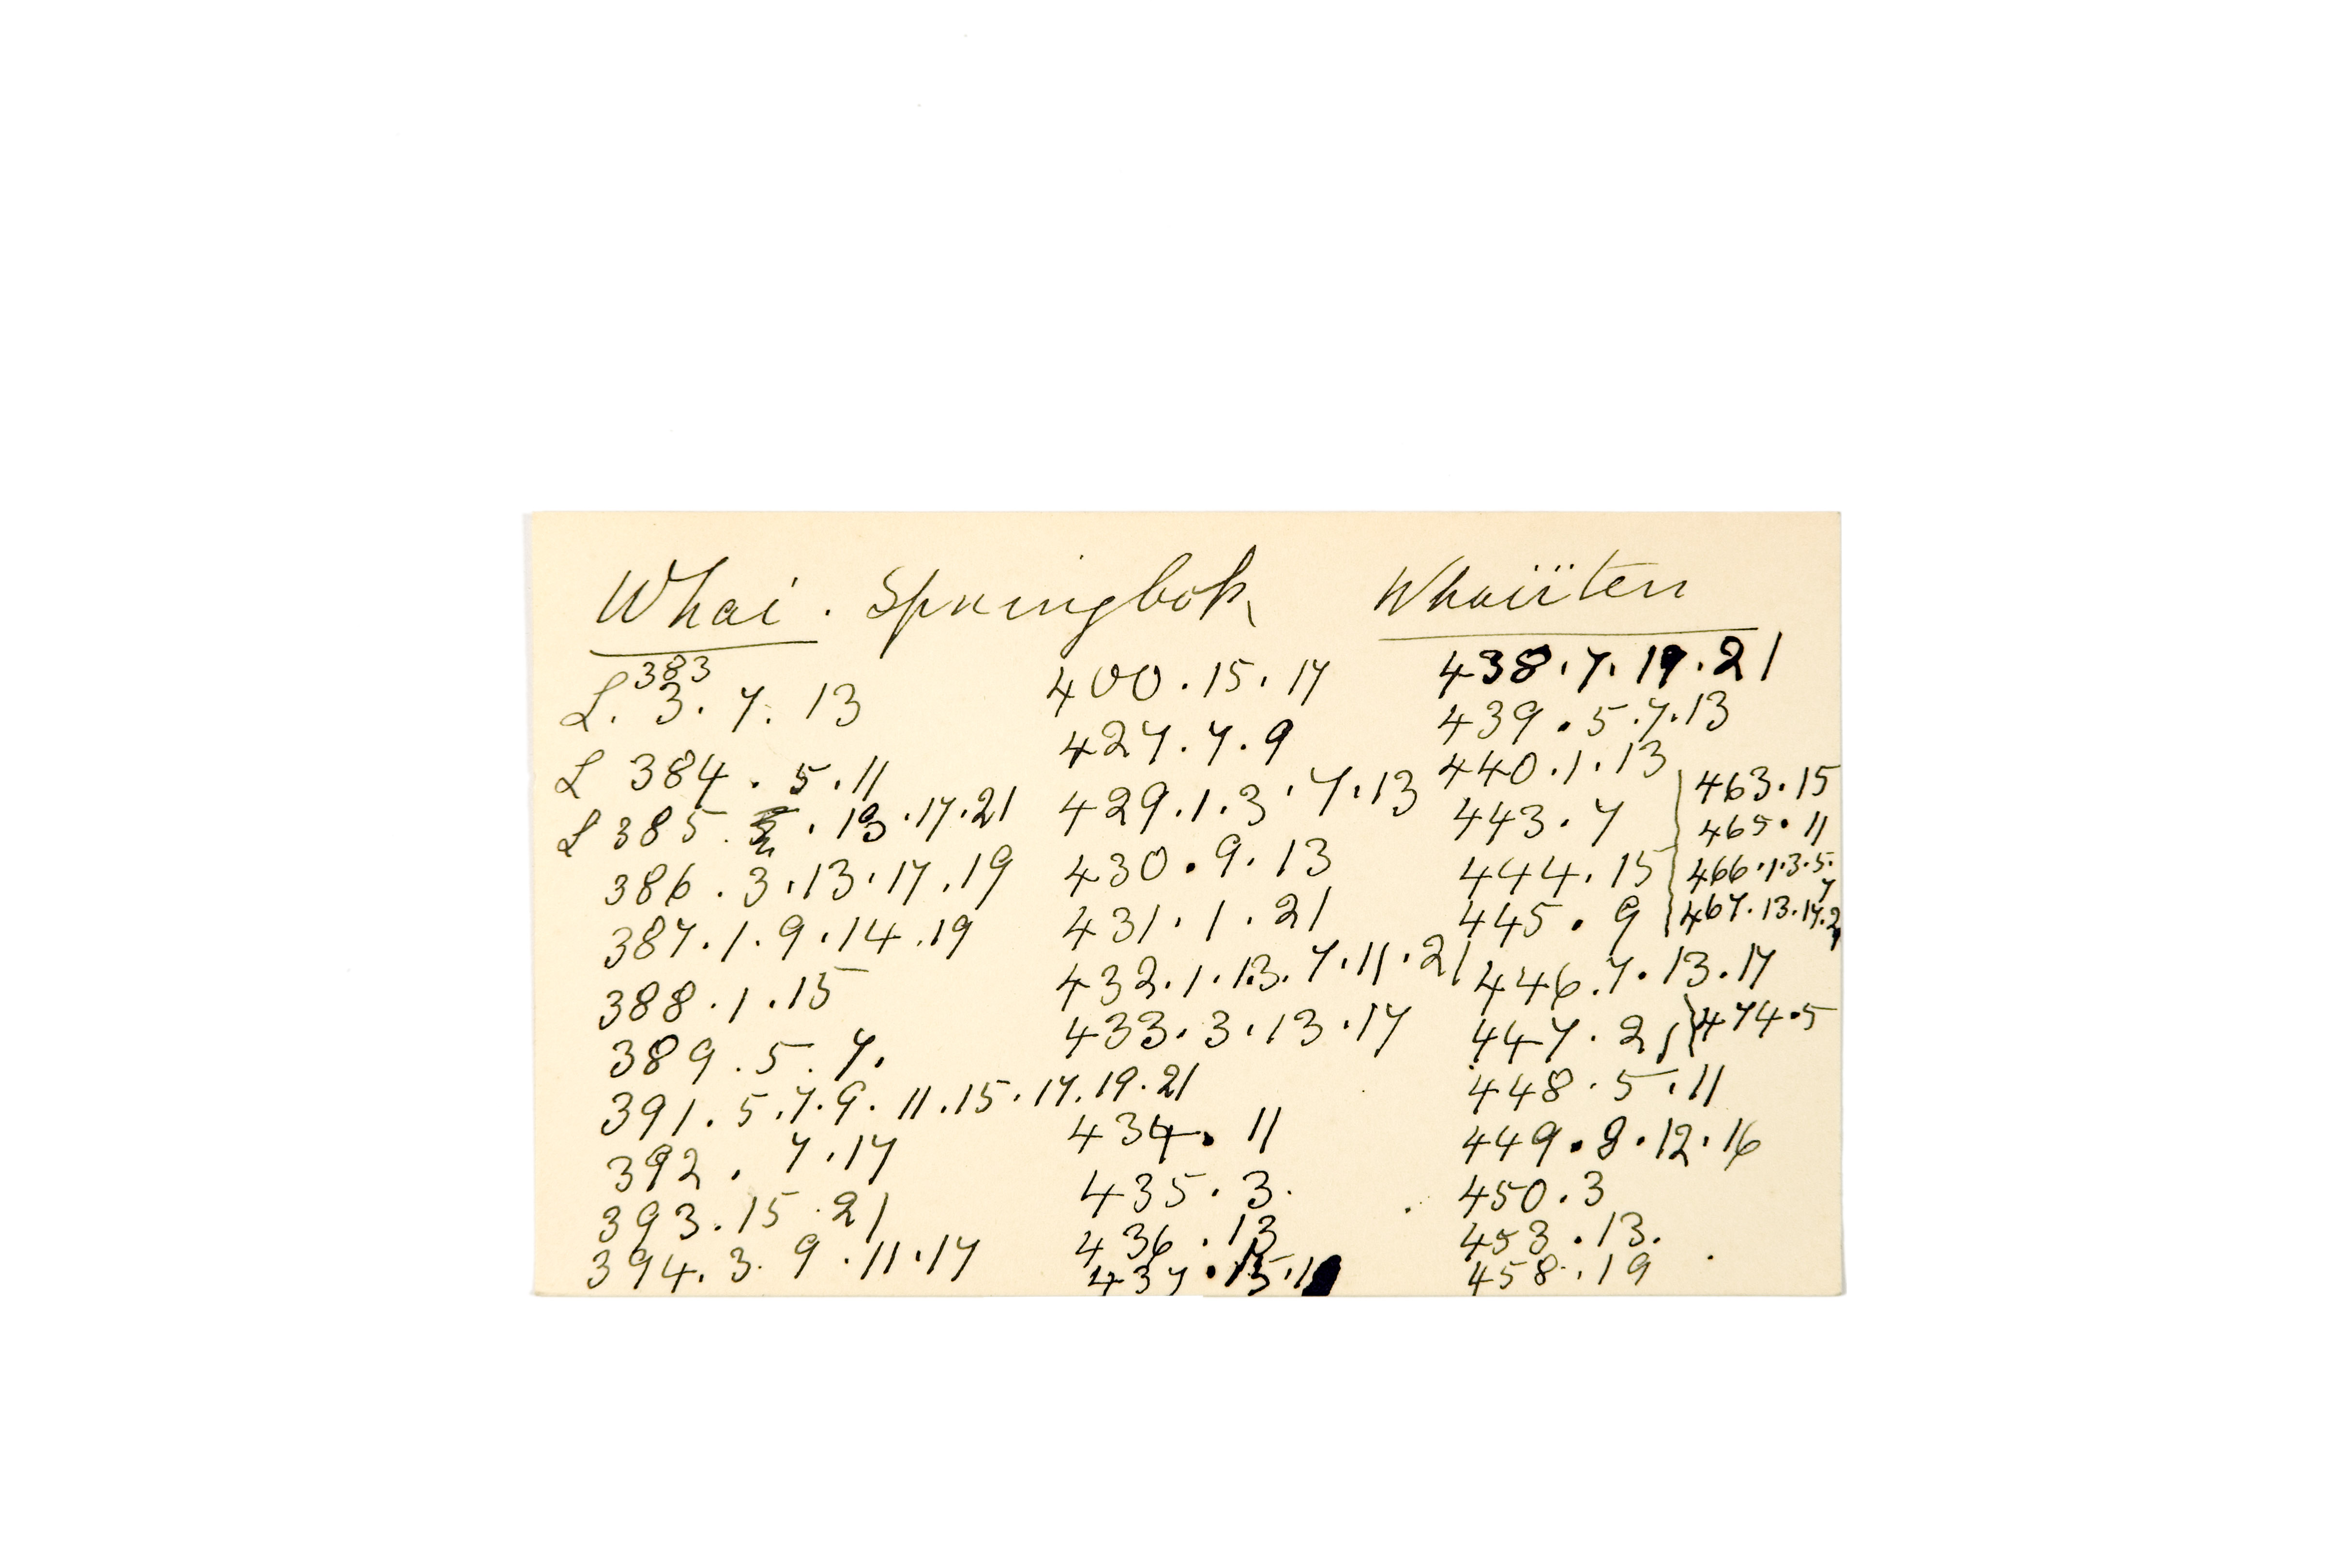 Whai . Springbok Whaiïten
383
L. 3. 7. 13
L 384 . 5 . 11
L 385 . 13 . 17 . 21
386 . 3 . 13 . 17 . 19
387 . 1 . 9 . 14 . 19
388 . 1 . 15
389 . 5 . 7.
391 . 5 . 7 . 9 . 11 . 15 . 17 . 19 . 21
392 . 7 . 17
393 . 15 . 21
394 . 3 . 9 . 11 . 17
400 . 15 . 17
427 . 7 . 9
429 . 1 . 3 . 7 . 13
430 . 9 . 13
431 . 1 . 21
432 . 1 . 13 . 7 . 11 . 21
433 . 3 . 13 . 17
434 . 11
435 . 3.
436 . 13
437 . 15 .
438 . 7 . 19 . 21
439 . 5 . 7 . 13
440 . 1 . 13
443 . 7
444 . 15
445 . 9
446 . 7 . 13 . 17
447 . 21
448 . 5 . 11
449 . 8 . 12 . 16
450 . 3
453 . 13.
458 . 19
463 . 15
465 . 11
466 . 1 . 3 . 5.
7
467 . 13 . 17 .
474 . 5